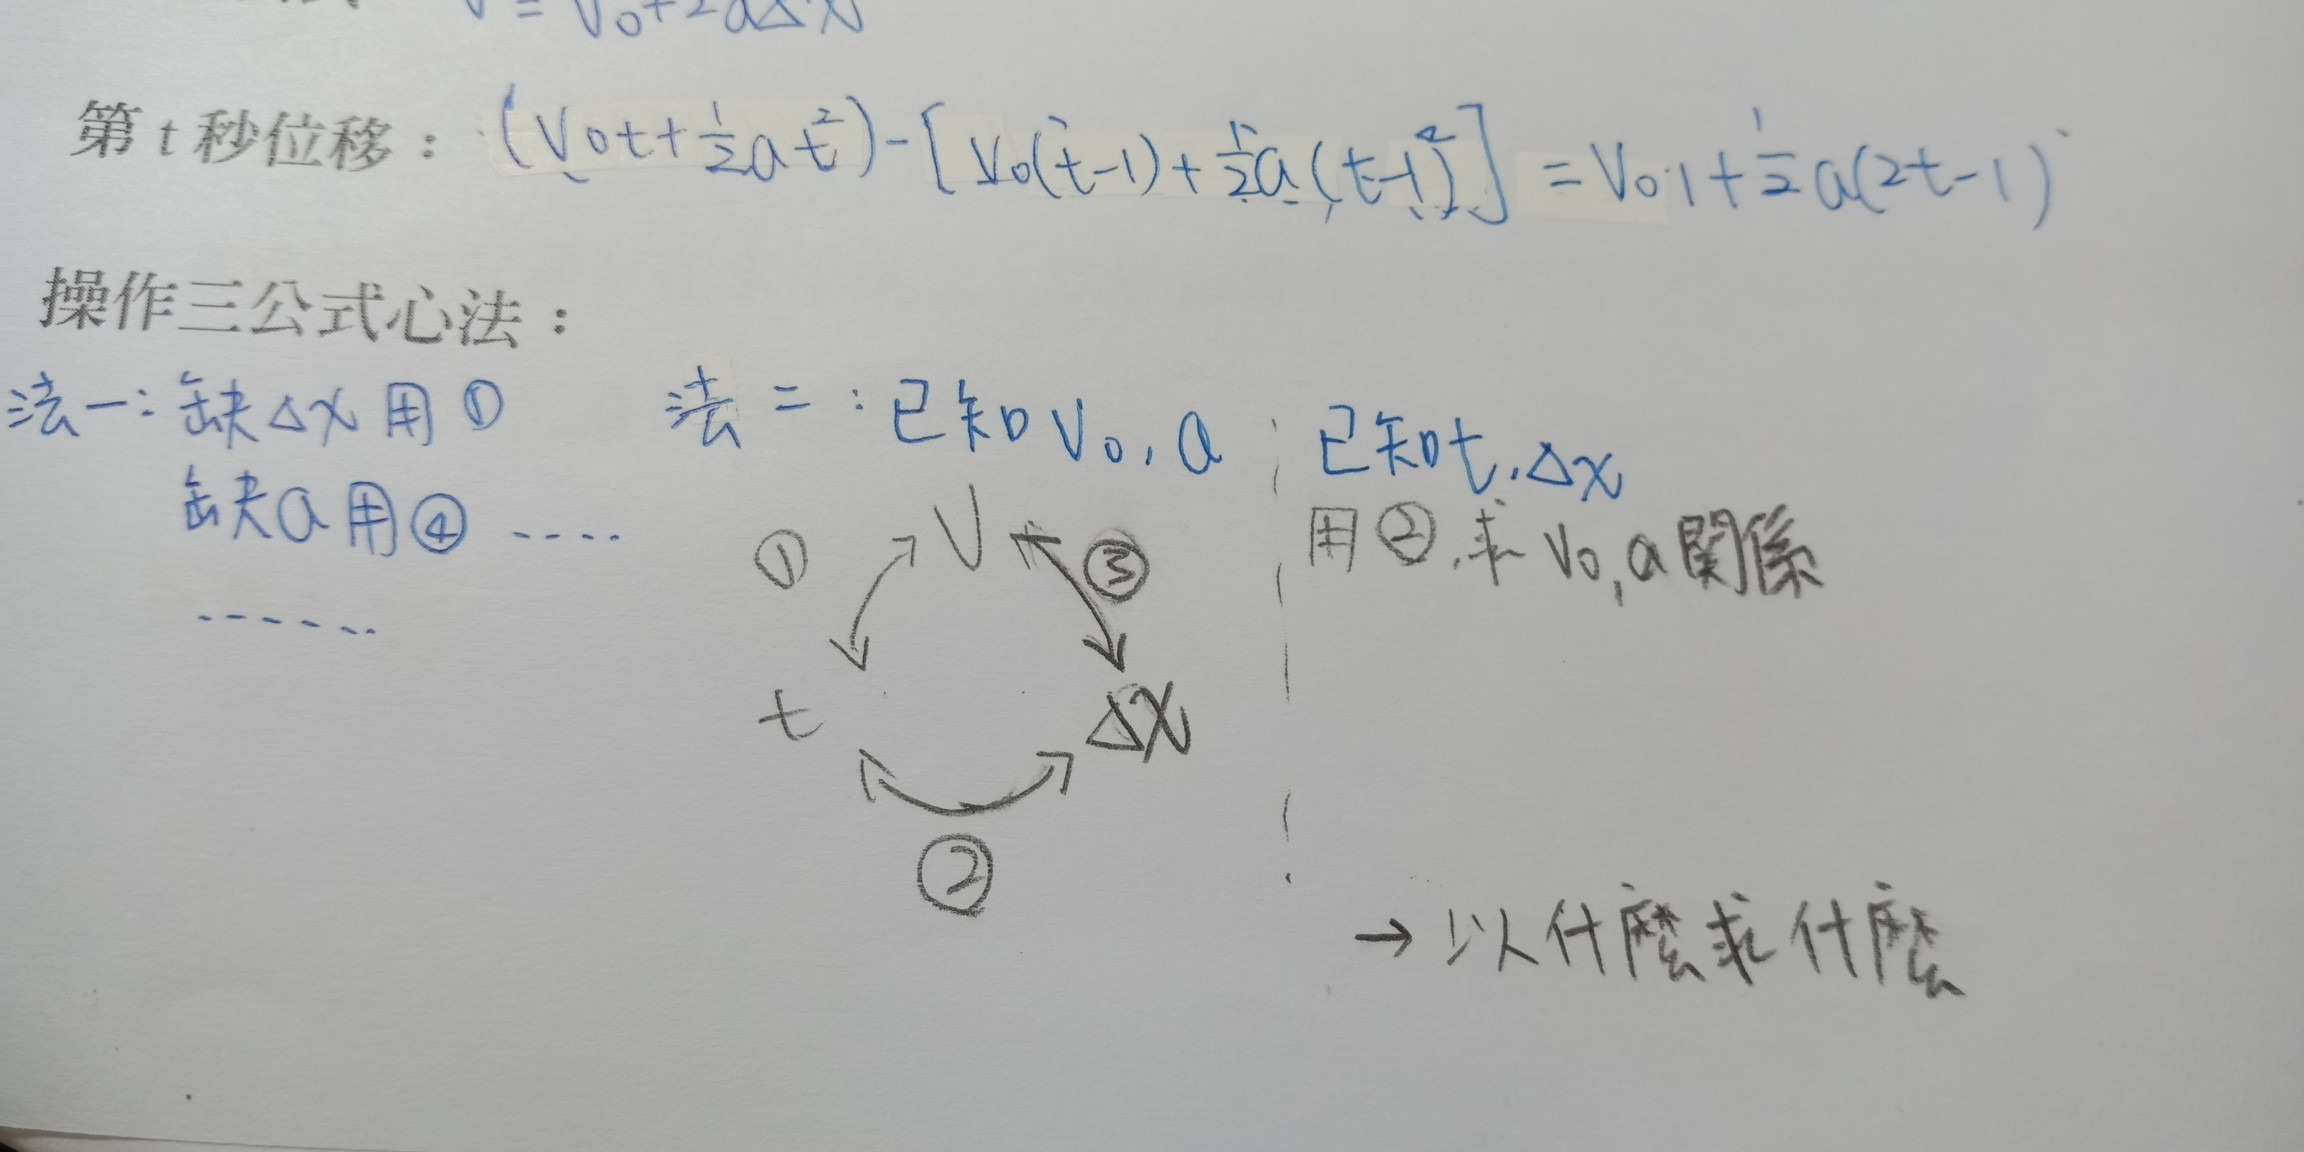 V = V₀+2aΔX
第 t 秒位移： (V₀t+½at²)-[V₀(t-1)+½a(t-1)²] =V₀·1+½a(2t-1)
操作三公式心法：
法一：缺ΔX用①
缺a用④ ....
......
法二：已知V₀,a
① V ③
t ΔX
②
已知t,ΔX
用②,求V₀,a關係
→ 以什麼求什麼